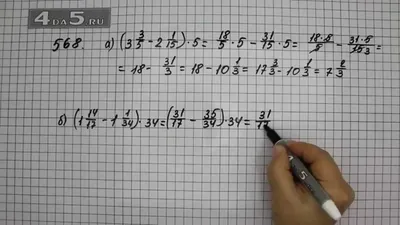 4DA5.RU
568. а) (3 3/5 - 2 1/15) · 5 = 18/5 · 5 - 31/15 · 5 = 18·5/5 - 31·5/15 3 =
= 18 - 31/3 = 18 - 10 1/3 = 17 3/3 - 10 1/3 = 7 2/3
б) (1 14/17 - 1 1/34) · 34 = (31/17 - 35/34) · 34 = 31/17